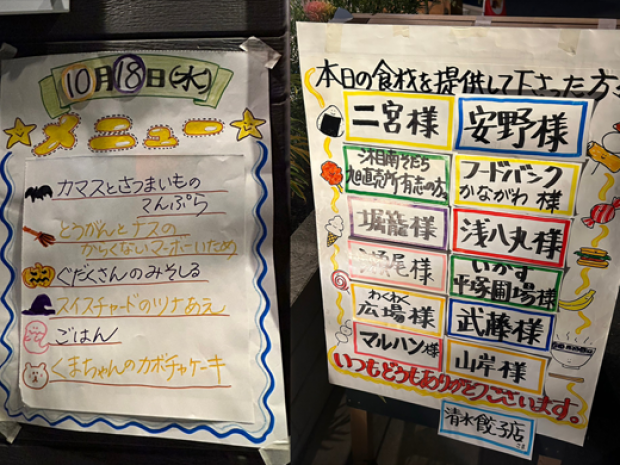 10月18日(水)
メニュー
カマスとさつまいもの
てんぷら
とうがんとナスの
からくないマーボーいため
ぐだくさんのみそしる
スイスチャードのツナあえ
ごはん
くまちゃんのカボチャケーキ
本日の食材を提供して下さった方
二宮様
安野様
湘南そだち
直売所有志の方
フードバンク
かながわ 様
堀籠様
浅八丸様
尾様
いかす
平塚圃場様
わくわく
広場様
武藤様
マルハン様
山岸様
いつもどうもありがとうございます。
清水餃子店
さま